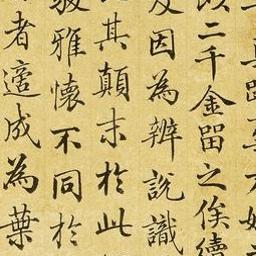 真
以二千金留之俟續
及因為辨說識
其顛末於此
雅懷不同於
者適成為葉